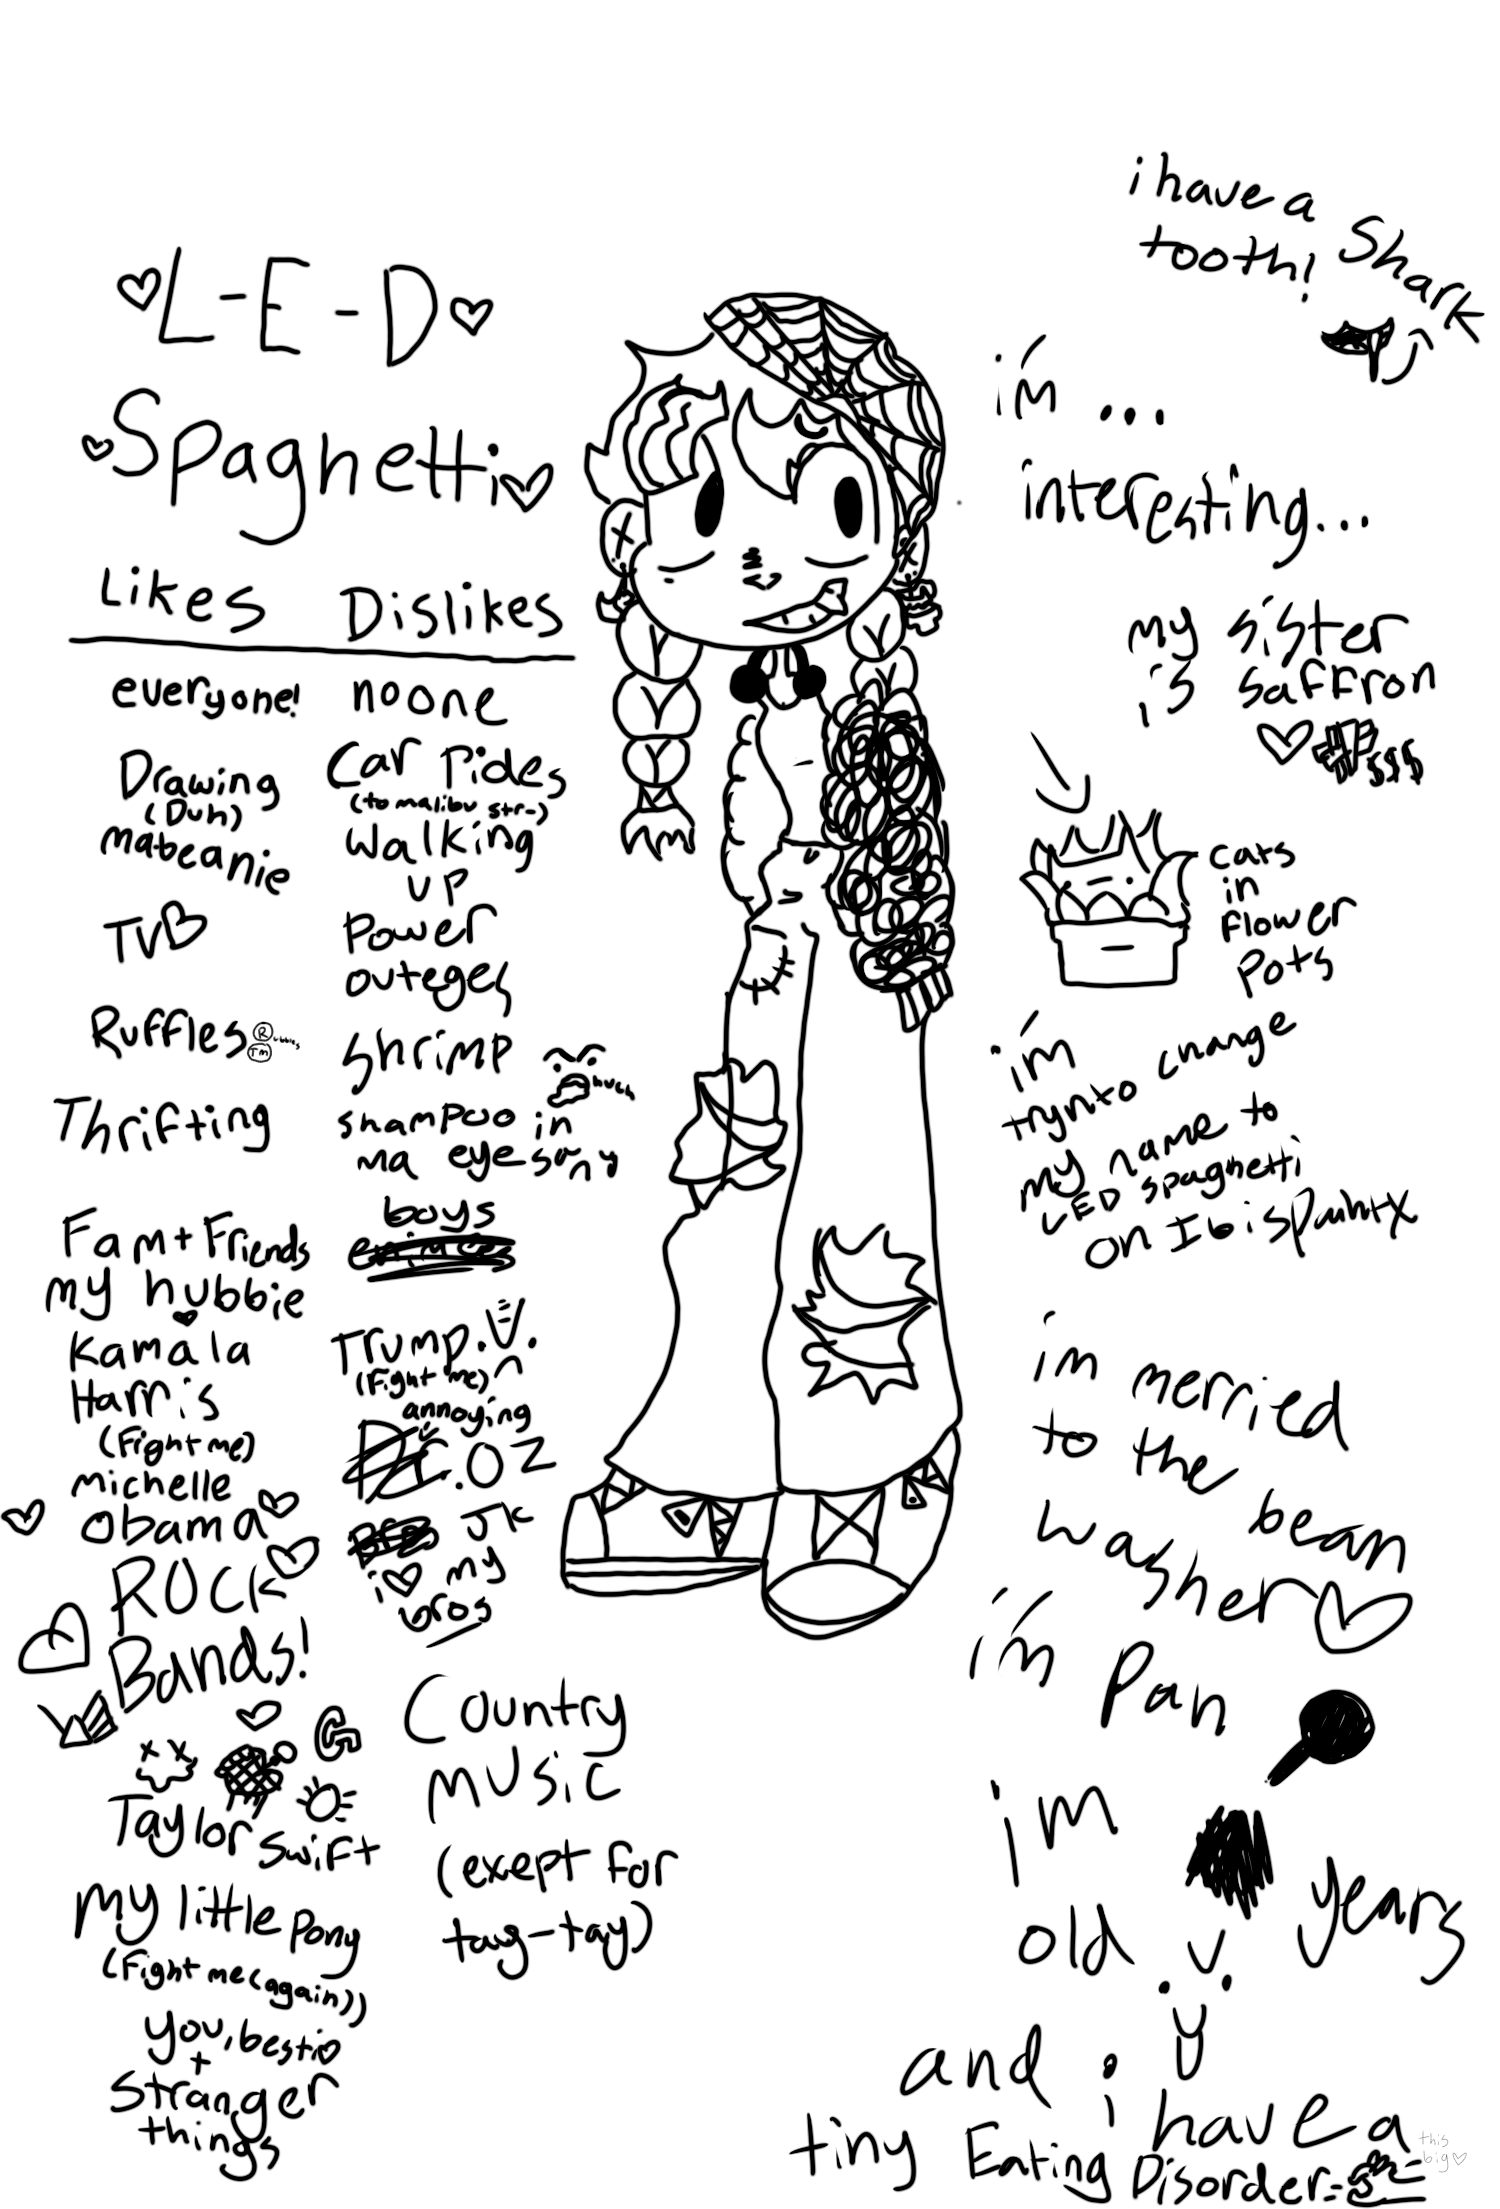 L-E-D
Spaghetti
Likes
everyone!
Drawing
(Duh)
mabeanie
TV
Ruffles ®
TM
Thrifting
Fam + Friends
my hubbie
Kamala
Harris
(Fight me)
michelle
obama
ROCK
Bands!
G
Taylor swift
my little pony
(Fight me (again))
you, bestio
+
stranger
things
Dislikes
no one
Car rides
(to malibu str-)
walking
up
power
outeges
shrimp
shampoo in
ma eyes
boys
Trump
(Fight me)
annoying
.OZ
JK
i my
bros
Country
music
(exept for
tay-tay)
i have a shark
tooth!
i'm ...
interesting...
my sister
i's saffron
$$$
cats
in
flower
pots
i'm
trynto change
my name to
LED spaghetti
on Ibispaintx
im merried
to the bean
washer
i'm pan
im years
old
and i have a
tiny Eating Disorder-
this
big